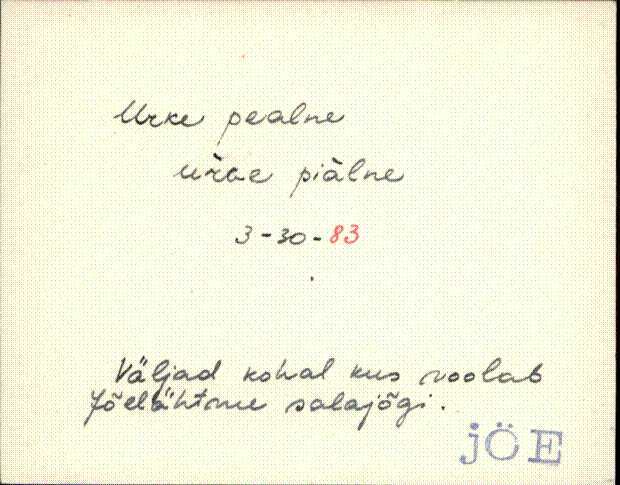 Urke pealne
ùrae piàlne
3-30-83
Väljad kohal kus voolab
Jõelähtme salajõgi.
jÖE